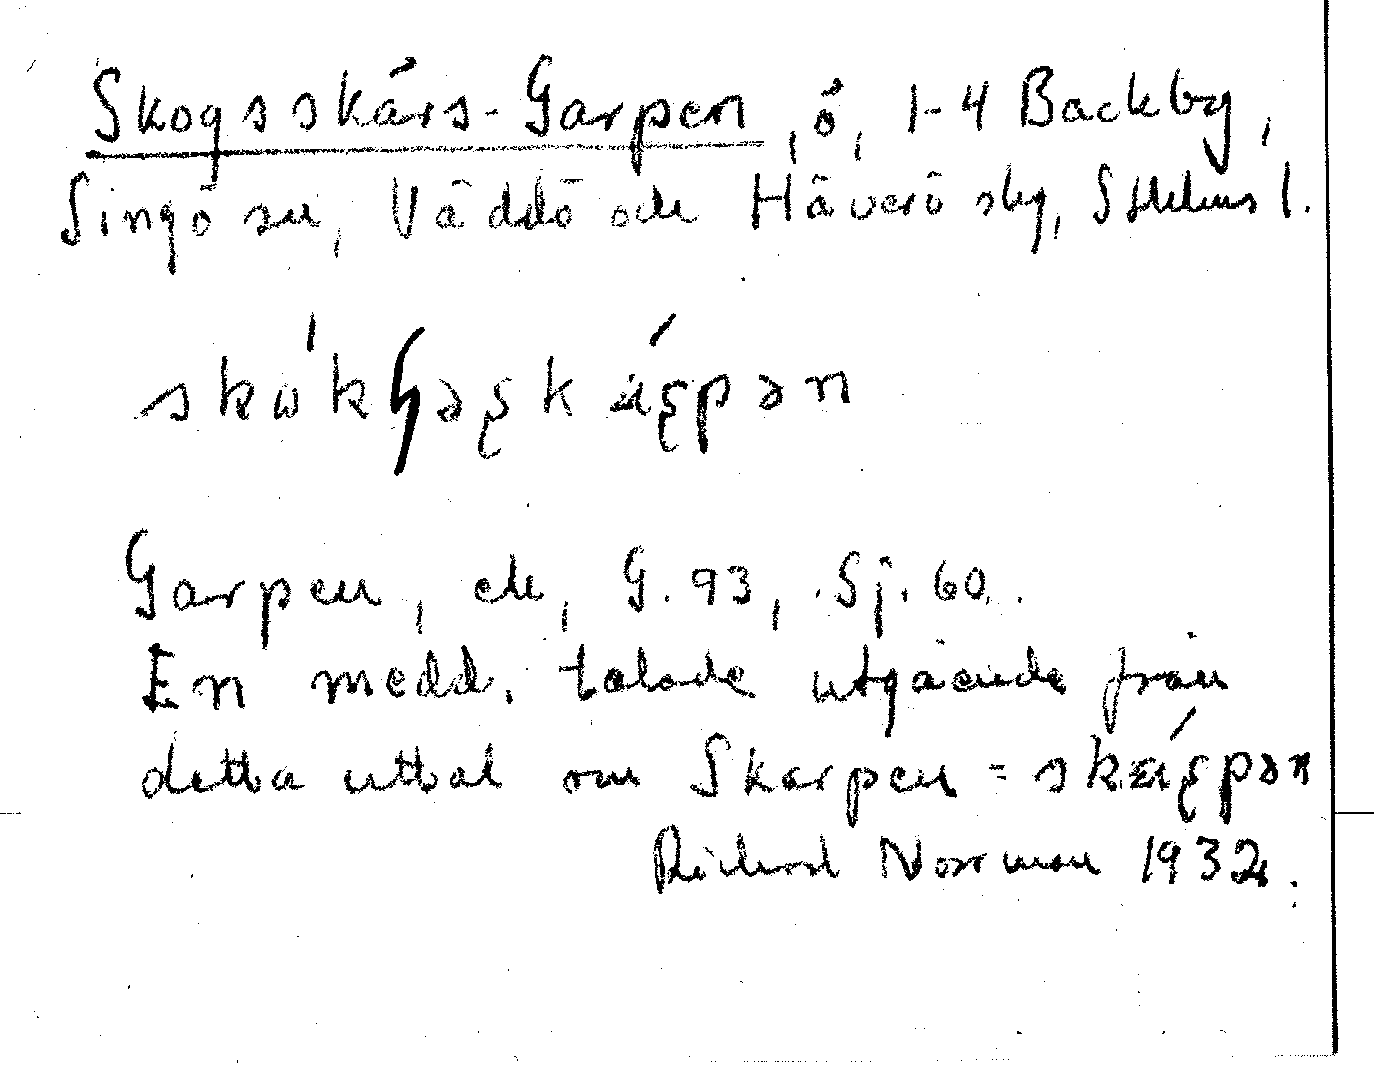 Skogsskärs-Garpen, ö, 1-4 Backby,
Singö sn, Väddö och Häverö skg, Sthlms l.
Garpen, ek, G. 93, Sj. 60.
En medd. talade utgående från
detta uttal om Skarpen =
Richard Norrman 1932.